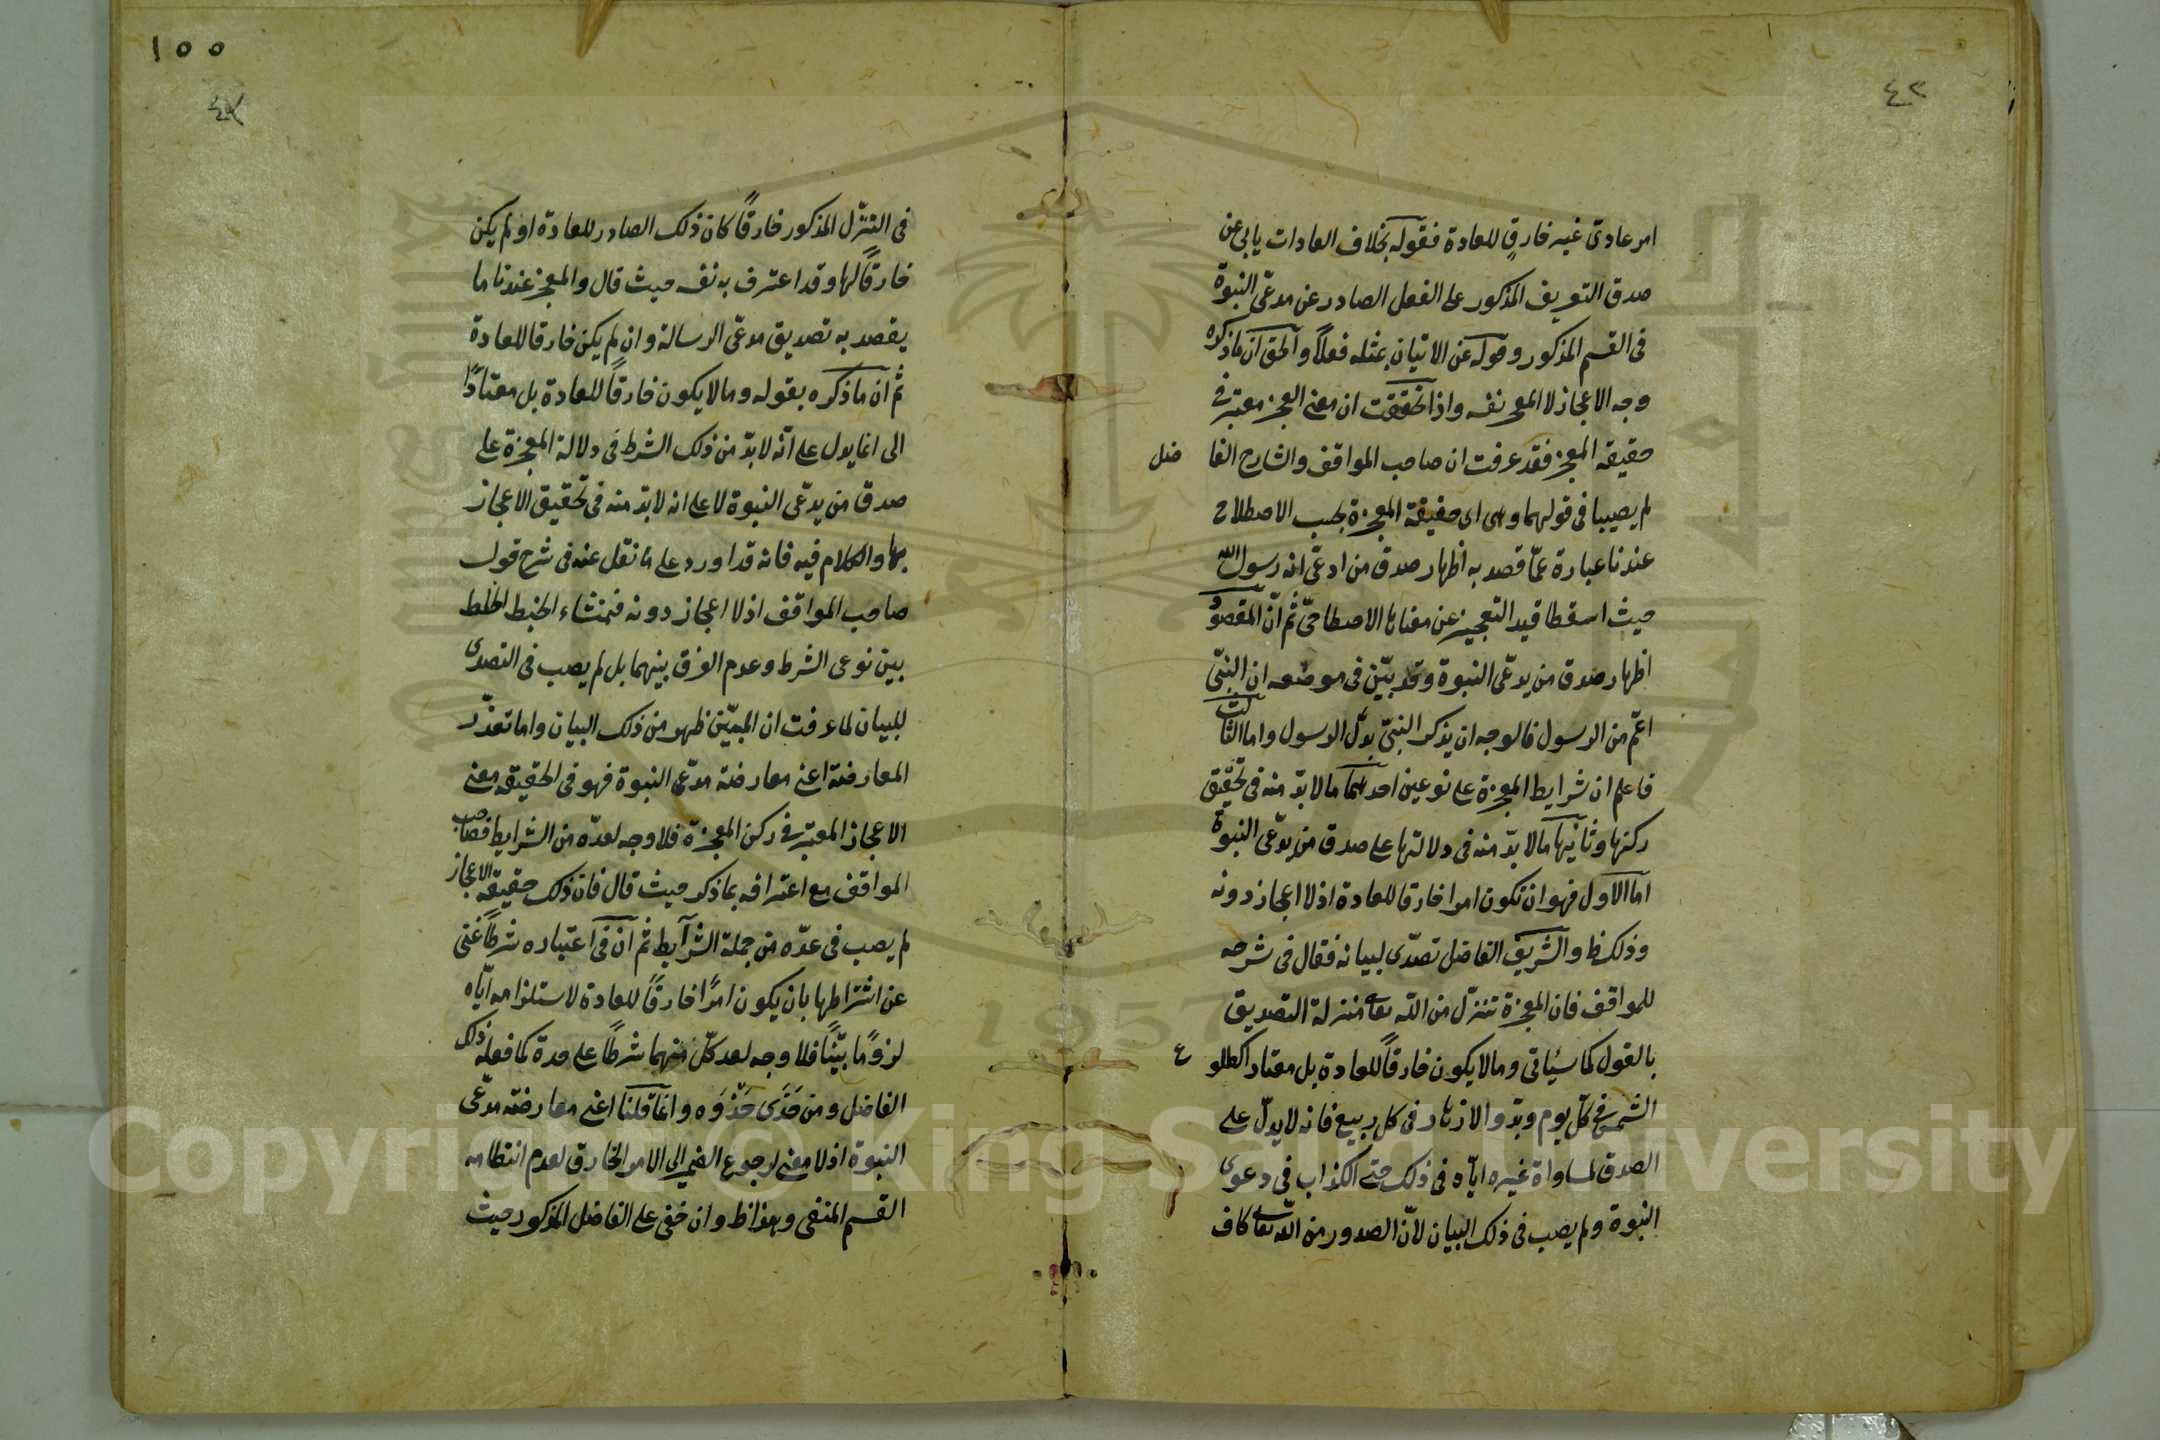 ٤٢
امر عادى غير خارق للعادة فقوله بخلاف العادات يابى عن
صدق التعريف المذكور على الفعل الصادر عن مدعى النبوة
فى القسم المذكور وقوله عن الاتيان بمثله فعلاً والحق ان ما ذكره
وجه الاعجاز لا المعجز نفسه واذا تحققت ان معنى العجز معتبر فى
حقيقه المعجز فقد عرفت ان صاحب المواقف والشارح الفاضل
لم يصيبا فى قولهما وهى اى حقيقة المعجزة بحسب الاصطلاح
عندنا عبارة عمّا قصد به اظهار صدق من ادعى انه رسول الله
حيث اسقطا قيد التعجيز عن معناها الاصطلاحىّ ثم انّ المقصود
اظهار صدق من يدعّى النبوة وقد بيّن فى موضعه ان النبىّ
اعمّ من الرسول فالوجه ان يذكر النبىّ بدل الرسول واما الثالث
فاعلم ان شرايط المعجزة على نوعين احديهما ما لا بدّ منه فى تحقيق
ركنها وثانيها ما لا بدّ منه فى دلالتها على صدق من يدّعى النبوة
امّا الاول فهو ان تكون امرا خارقا للعادة اذ لا اعجاز دونه
وذلك ظ والشريف الفاضل تصدّى لبيانه فقال فى شرحه
للمواقف فان المعجزة تنزّل من الله تعالى منزلة التصديق
بالقول كما سيأتى وما لا يكون خارقاً للعادة بل معتادا كطلوع
الشمس فى كلّ يوم وبدّو الازهار فى كل ربيع فانه لا يدلّ على
الصدق لمساواة غيره اياه فى ذلك حتى الكذاب فى دعوى
النبوة ولم يصب فى ذلك البيان لانّ الصدور من الله تعالى كاف
١٠٠
فى التنزّل المذكور خارقاً كان ذلك الصادر للعادة او لم يكن
خارقاً لها وقد اعترف به نفسه حيث قال والمعجز عندنا ما
يقصد به تصديق مدعّى الرسالة وان لم يكن خارقا للعادة
ثم ان ما ذكره بقوله وما لا يكون خارقاً للعادة بل معتاداً
الى انما يدل على انّه لا بدّ من ذلك الشرط فى دلالة المعجزة على
صدق من يدّعى النبوة لا على انه لا بد منه فى تحقيق الاعجاز
بها والكلام فيه فانه قد اورد على ما نقل عنه فى شرح قول
صاحب المواقف اذ لا اعجاز دونه فمنشاء الخبط الخلط
بين نوعى الشرط وعدم الفرق بينهما بل لم يصب فى التصدى
للبيان لما عرفت ان المبيّن ظهر من ذلك البيان واما تعذّر
المعارضة اعنى معارضة مدّعى النبوة فهو فى الحقيقه معنى
الاعجاز المعتبر فى ركن المعجزة فلا وجه لعدّه من الشرايط فصاحب
المواقف مع اعترافه بما ذكر حيث قال فان ذلك حقيقه الاعجاز
لم يصب فى عدّه من جملة الشرآيط ثم ان فى اعتباره شرطاً غنى
عن اشتراطها بان يكون امرًا خارقاً للعادة لاستلزامه ايّاه
لزومًا بيّنًا فلا وجه لعد كلّ منهما شرطاً على حدة كما فعله ذلك
الفاضل ومن حَذَى حَذْوَه وانما قلنا اعنى معارضة مدّعى
النبوة اذ لا معنى لرجوع الضمير الى الامر الخارق لعدم انتظامه
القسم المنفى وهذا ظ وان خفى على الفاضل المذكور حيث